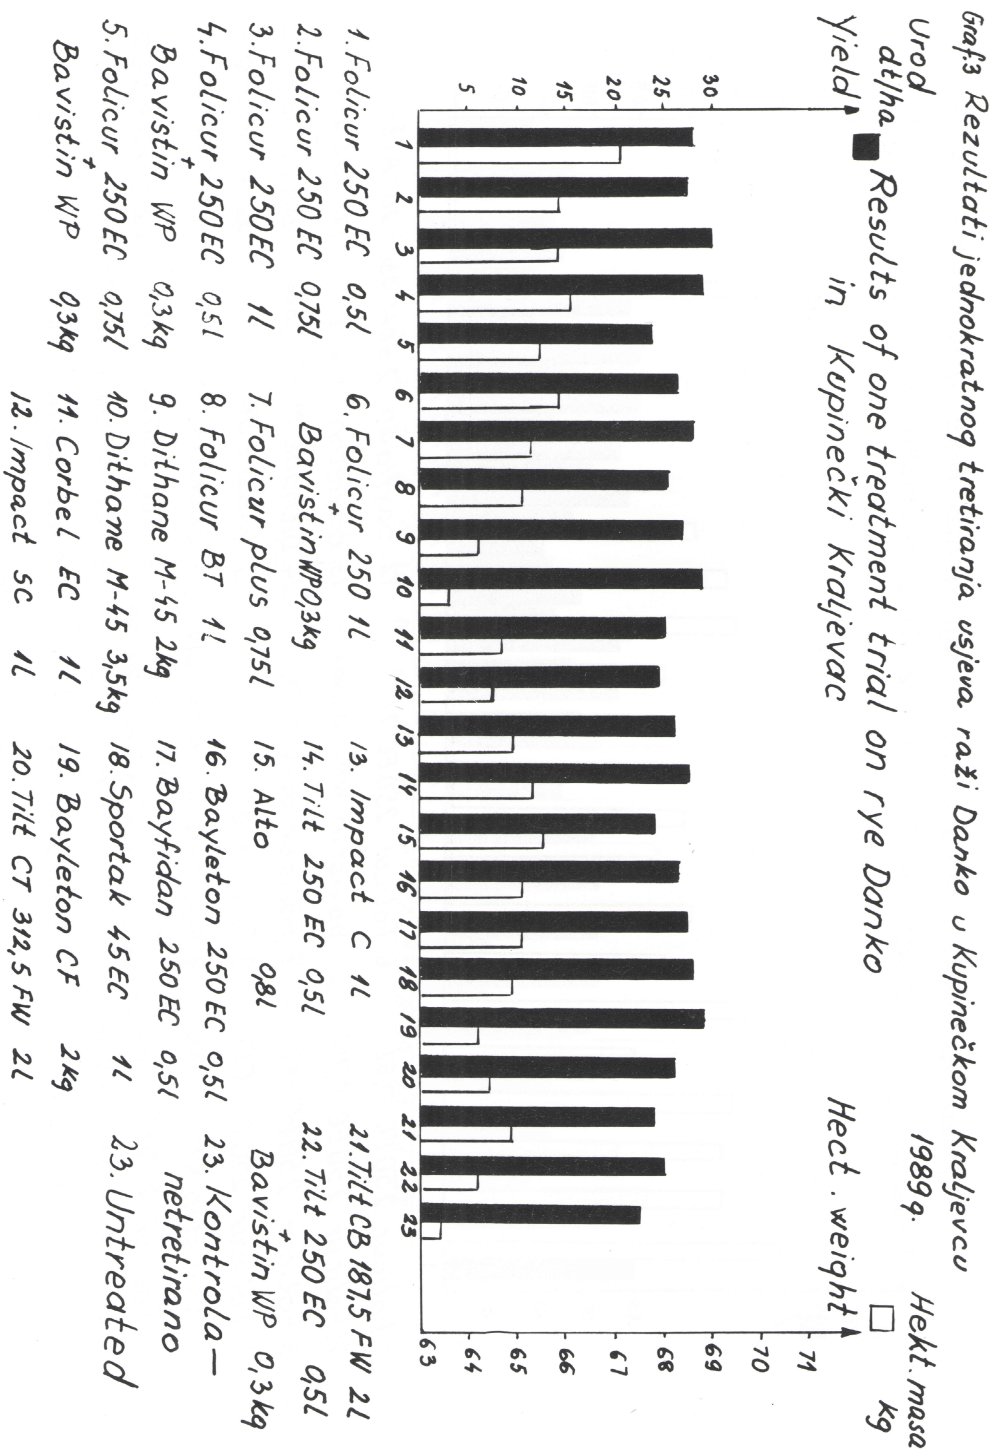 Graf.3 Rezultati jednokratnog tretiranja usjeva raži Danko u Kupinečkom Kraljevcu
1989g.
Urod
dt/ha
Yield
Results of one treatment trial on rye Danko
in Kupinečki Kraljevac
Hekt. masa
kg
Hect. weight
30
25
20
15
10
5
71
70
69
68
67
66
65
64
63
1 2 3 4 5 6 7 8 9 10 11 12 13 14 15 16 17 18 19 20 21 22 23
1. Folicur 250 EC 0,5l
2. Folicur 250 EC 0,75l
3. Folicur 250EC 1l
4. Folicur 250EC 0,5l
+
Bavistin WP 0,3kg
5. Folicur 250EC 0,75l
+
Bavistin WP 0,3kg
6. Folicur 250 1l
+
Bavistin WP 0,3kg
7. Folicur plus 0,75l
8. Folicur BT 1l
9. Dithane M-45 2kg
10. Dithane M-45 3,5kg
11. Corbel EC 1l
12. Impact SC 1l
13. Impact C 1l
14. Tilt 250 EC 0,5l
15. Alto 0,8l
16. Bayleton 250EC 0,5l
17. Bayfidan 250EC 0,5l
18. Sportak 45EC 1l
19. Bayleton CF 2kg
20. Tilt CT 312,5 FW 2l
21. Tilt CB 187,5 FW 2l
22. Tilt 250 EC 0,5l
+
Bavistin WP 0,3kg
23. Kontrola—
netretirano
23. Untreated